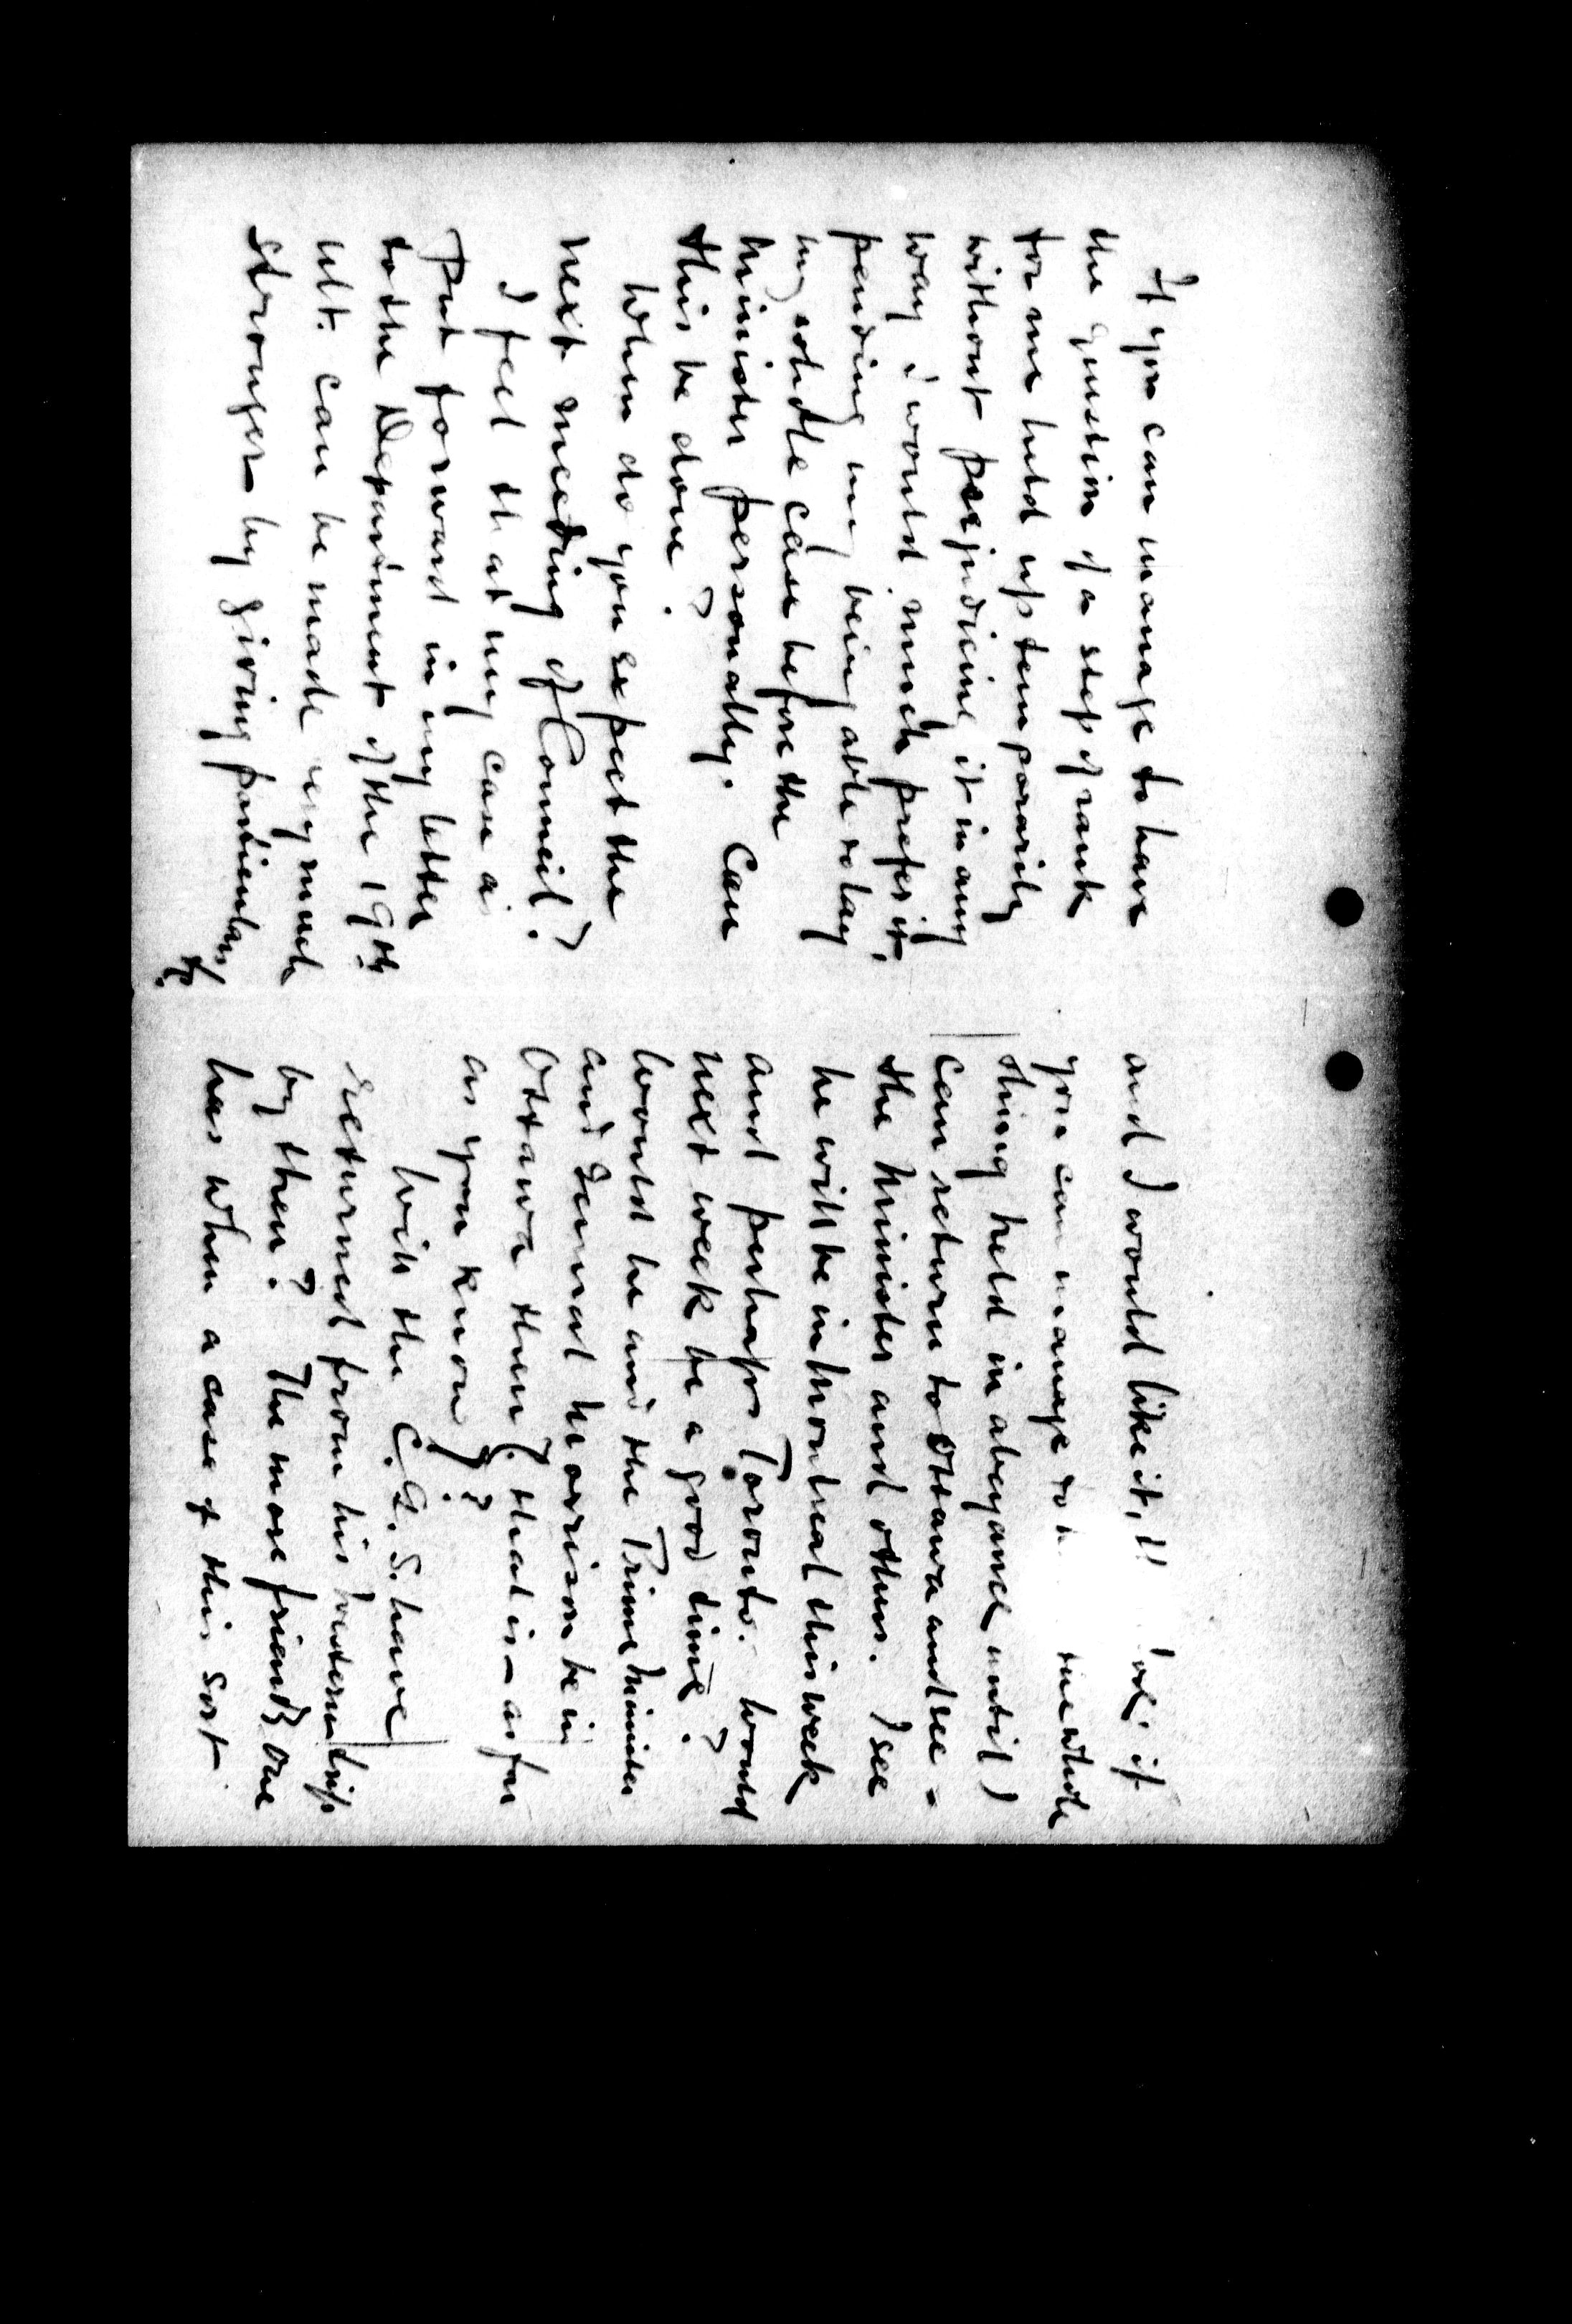 If you can manage to have
the question of a step of rank
for me held up temporarily
without prejudicing it in any
way I would much prefer it,
pending my being able to lay
my whole case before the
Minister personally. Can
this be done?
When do you expect the
next meeting of Council?
I feel that my case as
put forward in my letter
to the Department of the 19th
ult. can be made very much
stronger by giving particulars,
and I would like it, if
you can manage to whole
thing held in abeyance until I
can return to Ottawa and see -
the Minister and others. I see
he will be in Montreal this week
and perhaps Toronto. Would
next week be a good time?
Would he and the Prime Minister
and General Morrison be in
Ottawa then (that is - as far
as you know)?
Will the C.G.S. have
returned from his western trip
by then? The more friends one
has when a case of this sort